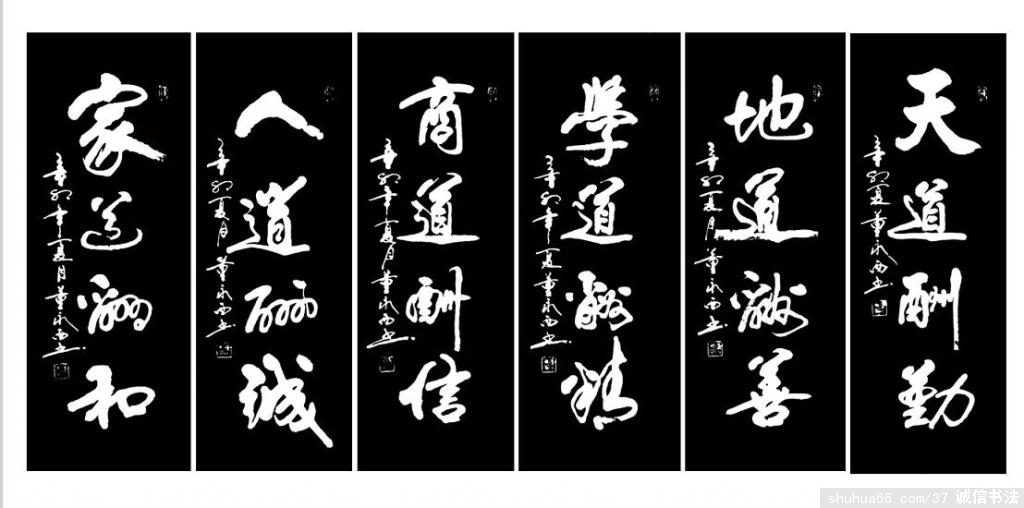 天道酬勤
辛卯夏董永西书
地道酬善
辛卯夏月董永西书
學道酬精
辛卯年夏董永西书
商道酬信
辛卯年夏月董永西书
人道酬誠
辛卯夏月董永西书
家道酬和
辛卯年夏月董永西书
shuhua66.com/37 诚信书法